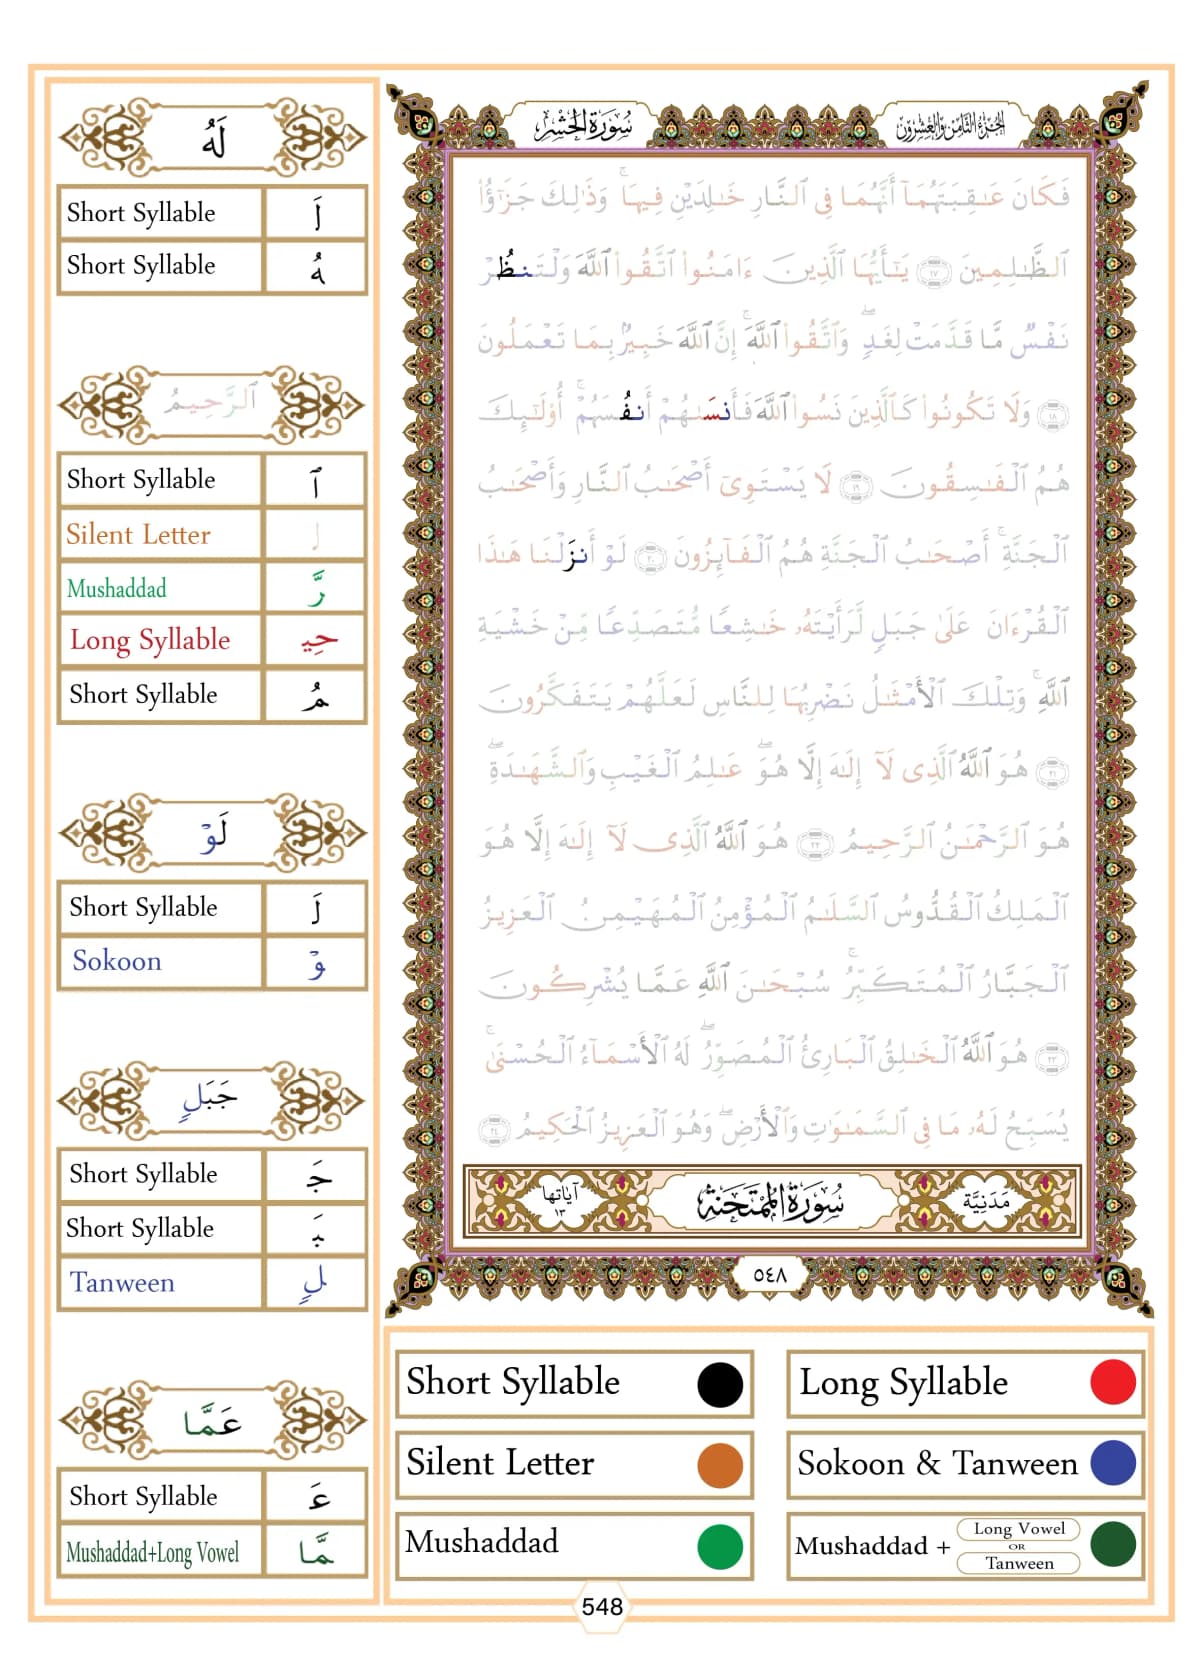 الجزء الثامن والعشرون
سورة الحشر
فَكَانَ عَٰقِبَتَهُمَآ أَنَّهُمَا فِى ٱلنَّارِ خَٰلِدَيْنِ فِيهَا ۚ وَذَٰلِكَ جَزَٰٓؤُا۟
ٱلظَّٰلِمِينَ ١٧ يَٰٓأَيُّهَا ٱلَّذِينَ ءَامَنُوا۟ ٱتَّقُوا۟ ٱللَّهَ وَلْتَنظُرْ
نَفْسٌ مَّا قَدَّمَتْ لِغَدٍ ۖ وَٱتَّقُوا۟ ٱللَّهَ ۚ إِنَّ ٱللَّهَ خَبِيرٌۢ بِمَا تَعْمَلُونَ
١٨ وَلَا تَكُونُوا۟ كَٱلَّذِينَ نَسُوا۟ ٱللَّهَ فَأَنسَىٰهُمْ أَنفُسَهُمْ ۚ أُو۟لَٰٓئِكَ
هُمُ ٱلْفَٰسِقُونَ ١٩ لَا يَسْتَوِىٓ أَصْحَٰبُ ٱلنَّارِ وَأَصْحَٰبُ
ٱلْجَنَّةِ ۚ أَصْحَٰبُ ٱلْجَنَّةِ هُمُ ٱلْفَآئِزُونَ ٢٠ لَوْ أَنزَلْنَا هَٰذَا
ٱلْقُرْءَانَ عَلَىٰ جَبَلٍ لَّرَأَيْتَهُۥ خَٰشِعًا مُّتَصَدِّعًا مِّنْ خَشْيَةِ
ٱللَّهِ ۚ وَتِلْكَ ٱلْأَمْثَٰلُ نَضْرِبُهَا لِلنَّاسِ لَعَلَّهُمْ يَتَفَكَّرُونَ
٢١ هُوَ ٱللَّهُ ٱلَّذِى لَآ إِلَٰهَ إِلَّا هُوَ ۖ عَٰلِمُ ٱلْغَيْبِ وَٱلشَّهَٰدَةِ ۖ
هُوَ ٱلرَّحْمَٰنُ ٱلرَّحِيمُ ٢٢ هُوَ ٱللَّهُ ٱلَّذِى لَآ إِلَٰهَ إِلَّا هُوَ
ٱلْمَلِكُ ٱلْقُدُّوسُ ٱلسَّلَٰمُ ٱلْمُؤْمِنُ ٱلْمُهَيْمِنُ ٱلْعَزِيزُ
ٱلْجَبَّارُ ٱلْمُتَكَبِّرُ ۚ سُبْحَٰنَ ٱللَّهِ عَمَّا يُشْرِكُونَ
٢٣ هُوَ ٱللَّهُ ٱلْخَٰلِقُ ٱلْبَارِئُ ٱلْمُصَوِّرُ ۖ لَهُ ٱلْأَسْمَآءُ ٱلْحُسْنَىٰ ۚ
يُسَبِّحُ لَهُۥ مَا فِى ٱلسَّمَٰوَٰتِ وَٱلْأَرْضِ ۖ وَهُوَ ٱلْعَزِيزُ ٱلْحَكِيمُ ٢٤
مَدَنِيَّة سُورَةُ الْمُمْتَحَنَةِ آياتها ١٣
٥٤٨
لَهُ
Short Syllable لَ
Short Syllable هُ
ٱلرَّحِيمُ
Short Syllable ٱ
Silent Letter ل
Mushaddad رَّ
Long Syllable حِيـ
Short Syllable مُ
لَوْ
Short Syllable لَ
Sokoon وْ
جَبَلٍ
Short Syllable جَـ
Short Syllable ـبَـ
Tanween لٍ
عَمَّا
Short Syllable عَـ
Mushaddad+Long Vowel مَّا
Short Syllable
Long Syllable
Silent Letter
Sokoon & Tanween
Mushaddad
Mushaddad + Long Vowel OR Tanween
548